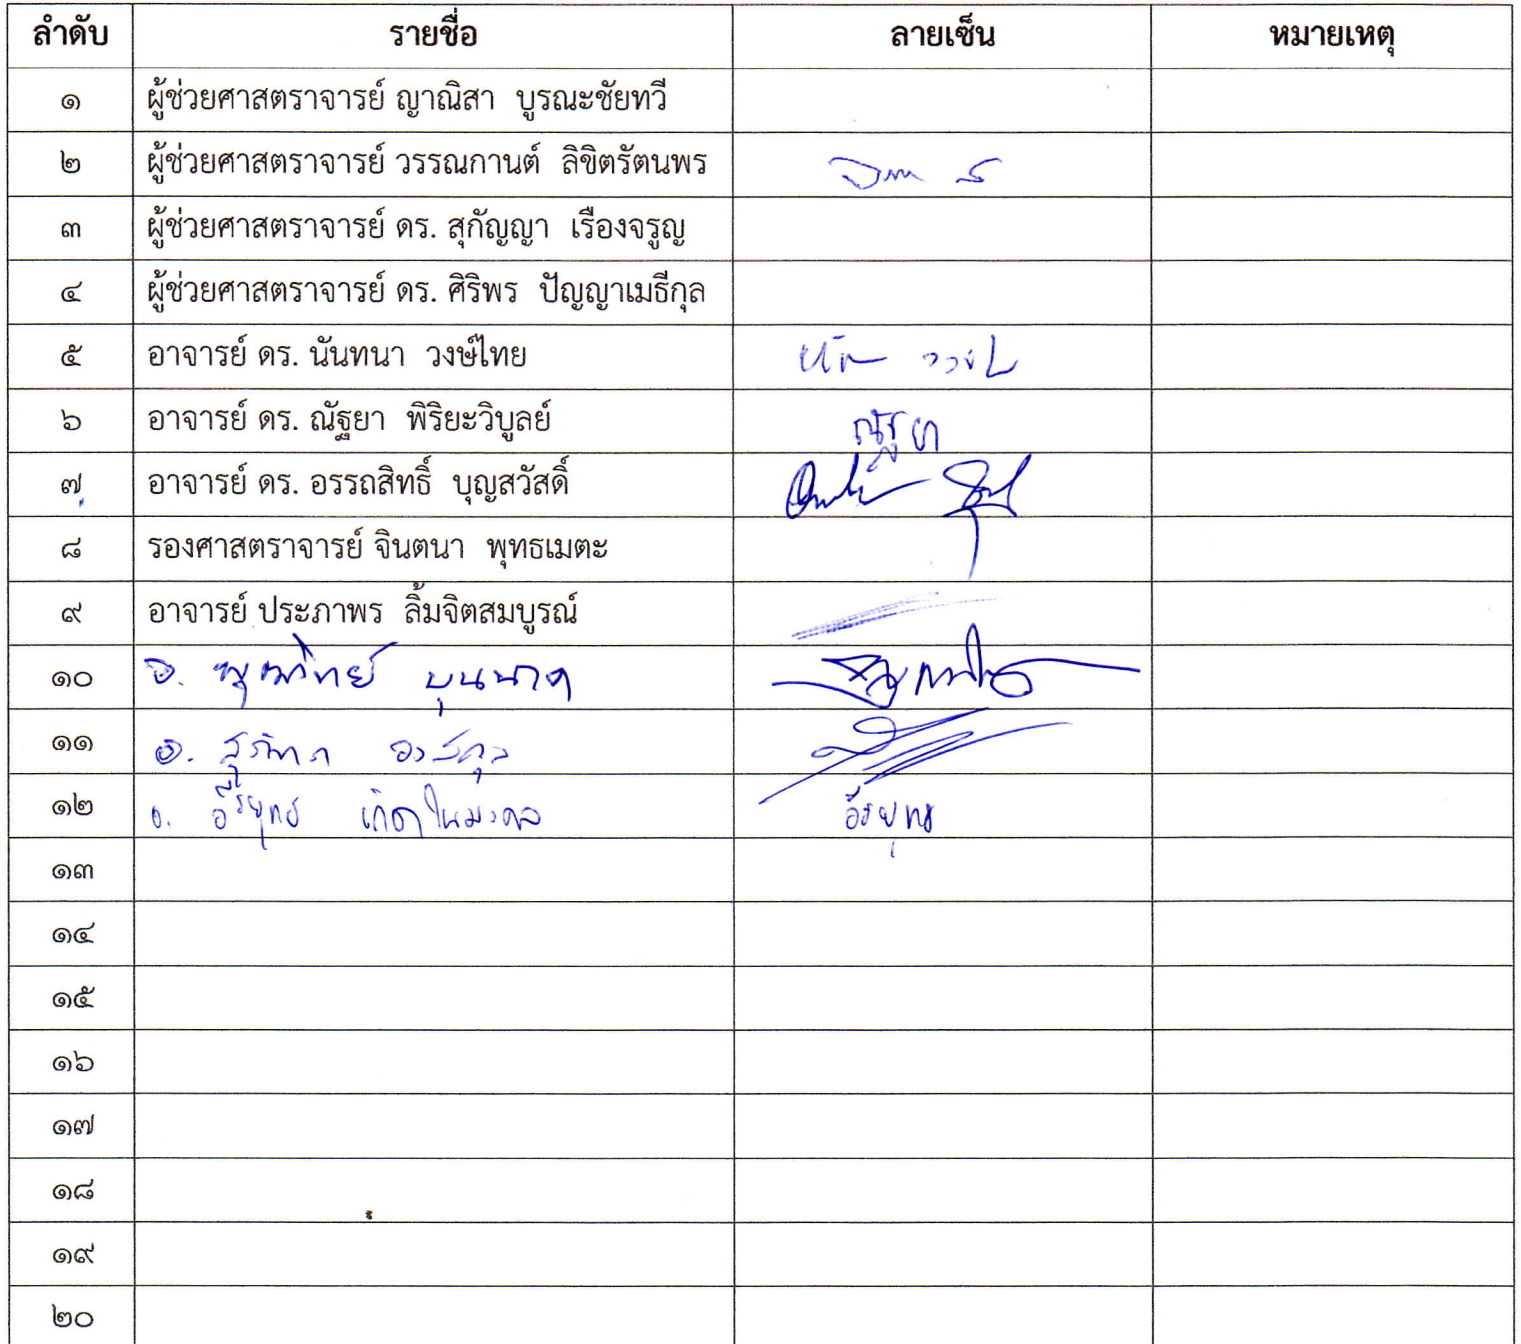 ลำดับ รายชื่อ ลายเซ็น หมายเหตุ
๑ ผู้ช่วยศาสตราจารย์ ญาณิสา บูรณะชัยทวี
๒ ผู้ช่วยศาสตราจารย์ วรรณกานต์ ลิขิตรัตนพร
๓ ผู้ช่วยศาสตราจารย์ ดร. สุกัญญา เรืองจรูญ
๔ ผู้ช่วยศาสตราจารย์ ดร. ศิริพร ปัญญาเมธีกุล
๕ อาจารย์ ดร. นันทนา วงษ์ไทย
๖ อาจารย์ ดร. ณัฐยา พิริยะวิบูลย์ ณัฐยา
๗ อาจารย์ ดร. อรรถสิทธิ์ บุญสวัสดิ์
๘ รองศาสตราจารย์ จินตนา พุทธเมตะ
๙ อาจารย์ ประภาพร ลิ้มจิตสมบูรณ์
๑๐ อ. บุนนาค
๑๑ อ.
๑๒ อ.
๑๓
๑๔
๑๕
๑๖
๑๗
๑๘
๑๙
๒๐